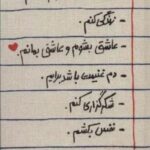 - زندگی کنم.
- عاشق بشوم و عاشق بمانم.
- دم غنیمت باشد برایم.
- شکرگزاری کنم.
- نفس بکشم